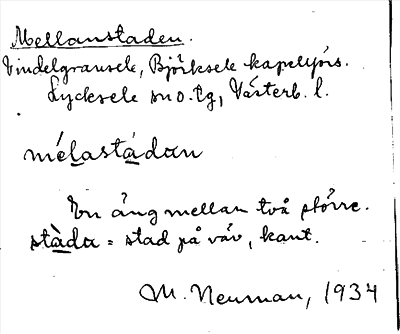 Mellanstaden.
Vindelgransele, Björksele kapellförs.
Lycksele sn o. tg, Västerb. l.
mélastádan
En äng mellan två större.
stàda = stad på väv, kant.
M. Neuman, 1934